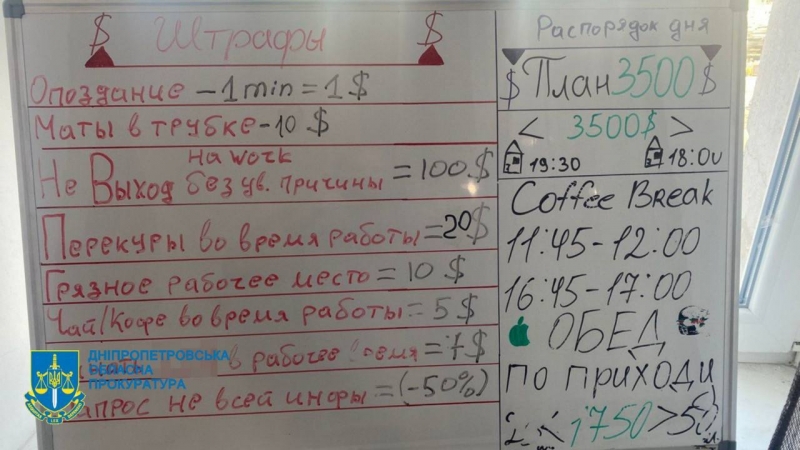 $ Штрафы $
Опоздание - 1 min = 1 $
Маты в трубке - 10 $
Не Выход на work без ув. причины = 100 $
Перекуры во время работы = 20 $
Грязное рабочее место = 10 $
Чай/Кофе во время работы = 5 $
в рабочее время =
не всей инфы = (-50%)
Распорядок дня
$ План 3500 $
< 3500$ >
19:30 18:00
Coffee Break
11:45 - 12:00
16:45 - 17:00
ОБЕД
по приходу
1750 >
ДНІПРОПЕТРОВСЬКА
ОБЛАСНА
ПРОКУРАТУРА